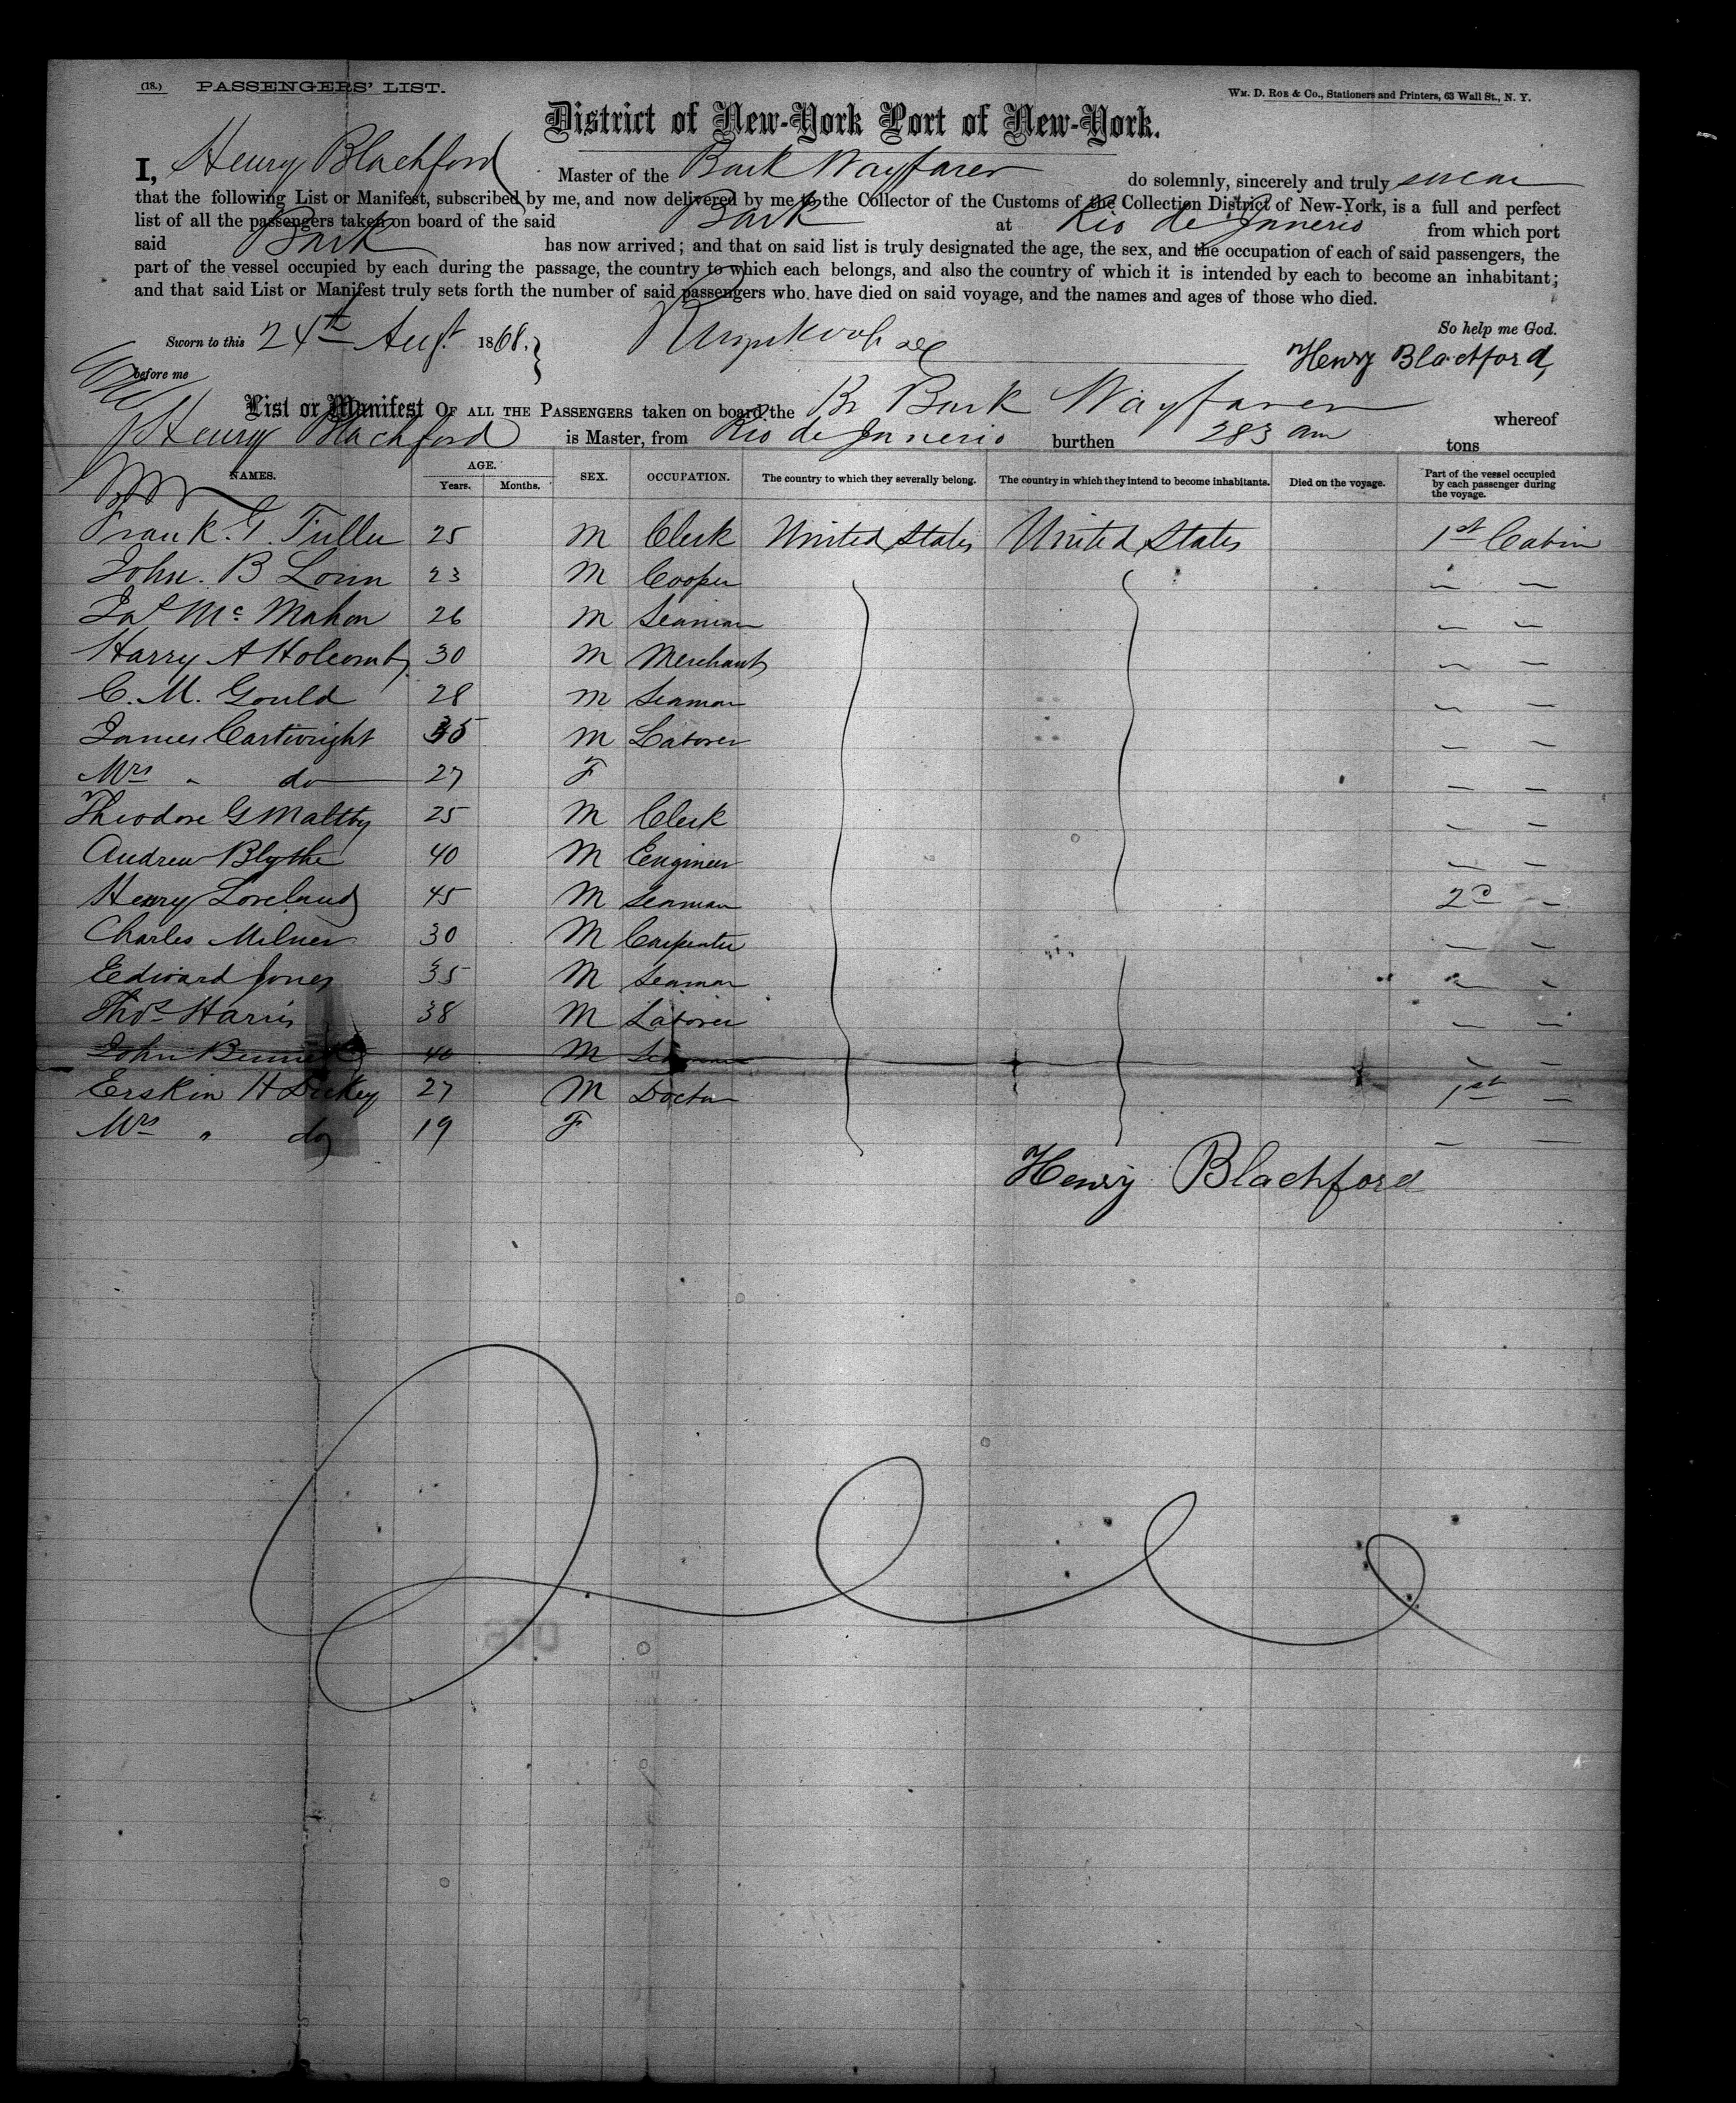 (18.) PASSENGERS' LIST.
WM. D. ROE & Co., Stationers and Printers, 63 Wall St., N. Y.
District of New-York Port of New-York.
I, Henry Blachford Master of the Bark Wayfarer do solemnly, sincerely and truly swear
that the following List or Manifest, subscribed by me, and now delivered by me to the Collector of the Customs of the Collection District of New-York, is a full and perfect
list of all the passengers taken on board of the said Bark at Rio de Jannerio from which port
said Bark has now arrived; and that on said list is truly designated the age, the sex, and the occupation of each of said passengers, the
part of the vessel occupied by each during the passage, the country to which each belongs, and also the country of which it is intended by each to become an inhabitant;
and that said List or Manifest truly sets forth the number of said passengers who have died on said voyage, and the names and ages of those who died.
So help me God.
Sworn to this 24th Augt 1868. Henry Blachford
before me
List or Manifest OF ALL THE PASSENGERS taken on board the Br Bark Wayfarer whereof
Henry Blachford is Master, from Rio de Jannerio burthen 283 am tons
NAMES. AGE. Years. Months. SEX. OCCUPATION. The country to which they severally belong. The country in which they intend to become inhabitants. Died on the voyage. Part of the vessel occupied by each passenger during the voyage.
Frank. G. Fuller 25 M Clerk United States United States 1st Cabin
John. B 23 M Cooper — —
Jas McMahon 26 M Seaman — —
Harry A Holcomb 30 M Merchant — —
C. M. Gould 28 M Seaman — —
James Cartwright 35 M Laborer — —
Mrs " do 27 F — —
Theodore G Maltby 25 M Clerk — —
Andrew Blythe 40 M Engineer — —
Henry Loveland 45 M Seaman 2d —
Charles Milner 30 M Carpenter — —
Edward Jones 35 M Seaman — —
Thos Harris 38 M Laborer — —
John Bennett 40 M Seaman — —
Erskin H Dickey 27 M Doctor 1st —
Mrs " do 19 F — —
Henry Blachford